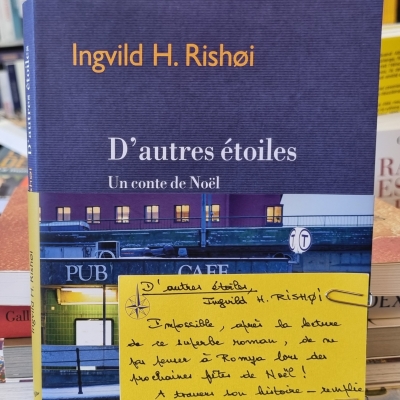 Ingvild H. Rishøi
D'autres étoiles
Un conte de Noël
PUB CAFE
T
D'autres étoiles
Ingvild H. Rishøi
D'autres étoiles,
Ingvild H. RISHØI
Impossible, après la lecture
de ce superbe roman, de ne
pas penser à Romya lors des
prochaines fêtes de Noël !
A travers son histoire – remplie
Gall